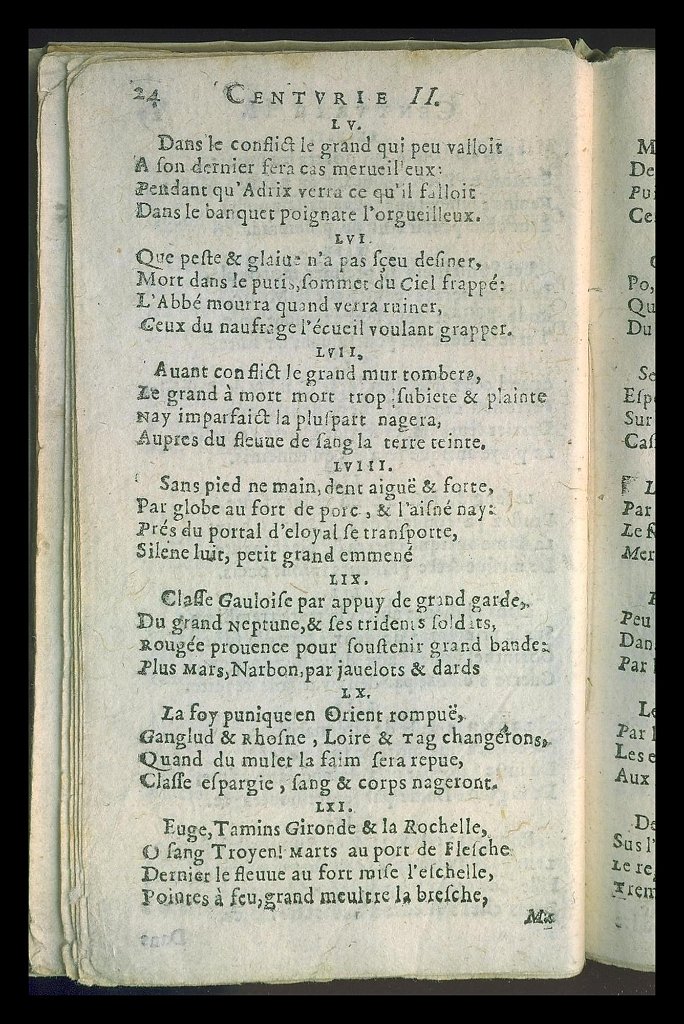 24 CENTVRIE II.
LV.
Dans le conflict le grand qui peu valloit
A son dernier fera cas merueilleux:
Pendant qu'Adrix verra ce qu'il falloit
Dans le banquet poignate l'orgueilleux.
LVI.
Que peste & glaiue n'a pas sçeu definer,
Mort dans le putis, sommet du Ciel frappé:
L'Abbé mourra quand verra ruiner,
Ceux du naufrage l'écueil voulant grapper.
LVII,
Auant conflict le grand mur tombera,
Le grand à mort mort trop subiete & plainte
Nay imparfaict la pluspart nagera,
Aupres du fleuue de sang la terre teinte.
LVIII.
Sans pied ne main, dent aiguë & forte,
Par globe au fort de porc, & l'aisné nay:
Prés du portal d'eloyal se transporte,
Silene luit, petit grand emmené
LIX.
Classe Gauloise par appuy de grand garde,
Du grand Neptune, & ses tridents soldats,
Rougée prouence pour soustenir grand bande:
Plus Mars, Narbon, par jauelots & dards
LX.
La foy punique en Orient rompuë,
Ganglud & Rhosne, Loire & Tag changerons,
Quand du mulet la faim sera repue,
Classe espargie, sang & corps nageront.
LXI.
Euge, Tamins Gironde & la Rochelle,
O sang Troyen! Marts au port de Flesche
Dernier le fleuue au fort mise l'eschelle,
Pointes à feu, grand meultre la bresche,
Ma
M
De
Pui
Ce
Po,
Qu
Du
Se
Espe
Sur
Cas
L
Par
Le
Mer
Peu
Dan
Par
Le
Par
Les e
Aux
De
Sus l'
Le re
Trem